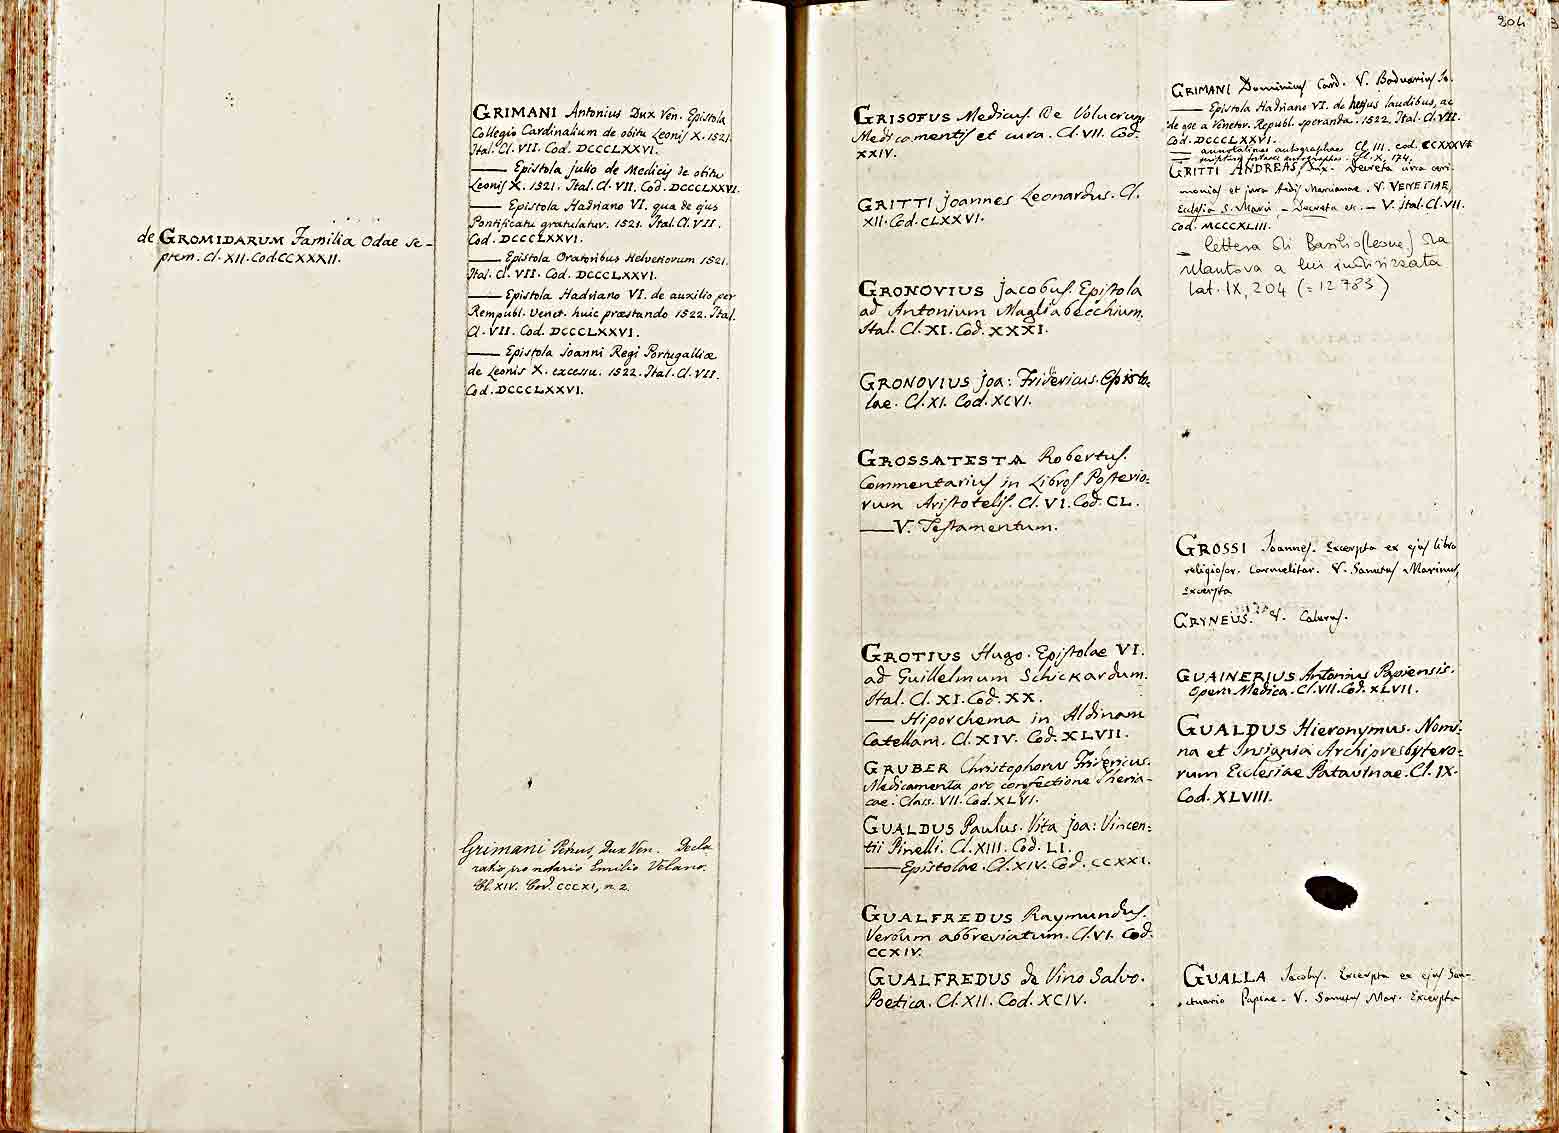 de GROMIDARUM Familia Odae se-
prem. Cl. XII. Cod. CCXXXII.
GRIMANI Antonius Dux Ven. Epistola
Collegio Cardinalium de obitu Leonis X. 1521.
Ital. Cl. VII. Cod. DCCCLXXVI.
—— Epistola Julio de Medicis de obitu
Leonis X. 1521. Ital. Cl. VII. Cod. DCCCLXXVI.
—— Epistola Hadriano VI. qua de ejus
Pontificatu gratulatur. 1521. Ital. Cl. VII.
Cod. DCCCLXXVI.
—— Epistola Oratoribus Helvetiorum 1521.
Ital. Cl. VII. Cod. DCCCLXXVI.
—— Epistola Hadriano VI. de auxilio per
Rempubl. Venet. huic præstando 1522. Ital.
Cl. VII. Cod. DCCCLXXVI.
—— Epistola Joanni Regi Portugalliæ
de Leonis X. excessu. 1522. Ital. Cl. VII.
Cod. DCCCLXXVI.
Grimani Petrus, Dux Ven. Decla
ratio pro notario Emilio Velano.
Cl. XIV. Cod. CCCXI, n. 2.
204
GRISOFUS Medicus. De Volucrum
Medicamentis et cura. Cl. VII. Cod.
XXIV.
GRITTI Joannes Leonardus. Cl.
XII. Cod. CLXXVI.
GRONOVIUS Jacobus. Epistola
ad Antonium Magliabecchium.
Ital. Cl. XI. Cod. XXXI.
GRONOVIUS Joa: Fridericus. Episto:
lae. Cl. XI. Cod. XCVI.
GROSSATESTA Robertus.
Commentarius in Libros Posterio:
rum Aristotelis. Cl. VI. Cod. CL.
—— V. Testamentum.
GROTIUS Hugo. Epistolae VI.
ad Guillelmum Schickardum.
Ital. Cl. XI. Cod. XX.
—— Hiporchema in Aldinam
Catellam. Cl. XIV. Cod. XLVII.
GRUBER Christophorus Fridericus.
Medicamenta pro confectione Theria-
cae. Class. VII. Cod. XLVI.
GUALDUS Paulus. Vita Joa: Vincen:
tii Pinelli. Cl. XIII. Cod. LI.
—— Epistolae. Cl. XIV. Cod. CCXXI.
GUALFREDUS Raymundus.
Verbum abbreviatum. Cl. VI. Cod.
CCXIV.
GUALFREDUS de Vino Salvo.
Poetica. Cl. XII. Cod. XCIV.
GRIMANI Dominius Card. V. Boduarius Se.
—— Epistola Hadriano VI. de hejus laudibus, ac
de spe a Venetor. Republ. speranda. 1522. Ital. Cl. VII.
Cod. DCCCLXXVI.
—— annotationes autographae Cl. III. cod. CCXXXVI
X, 174.
GRITTI ANDREAS, Dux. Decreta circa ceri-
monias et jura Aedis Marcianae. V. VENETIAE,
Ecclesia S. Marci - Decreta ec. - V. Ital. Cl. VII.
Cod. MCCCXLIII.
— lettera di Basilio (Leone) da
Mantova a lui indirizzata
Lat. IX, 204 (= 12783)
GROSSI Joannes. Excerpta ex ejus libro
religiosor. Carmelitar. V. Sanutus Marinus,
Excerpta
GRYNEUS. V. Caberus.
GUAINERIUS Antonius Papiensis.
Opera Medica. Cl. VII. Cod. XLVII.
GUALDUS Hieronymus. Nomi:
na et Insignia Archipresbytero:
rum Ecclesiae Patavinae. Cl. IX.
Cod. XLVIII.
GUALLA Jacobus. Excerpta ex ejus San-
ctuario Papiae. V. Sanutus Mar. Excerpta